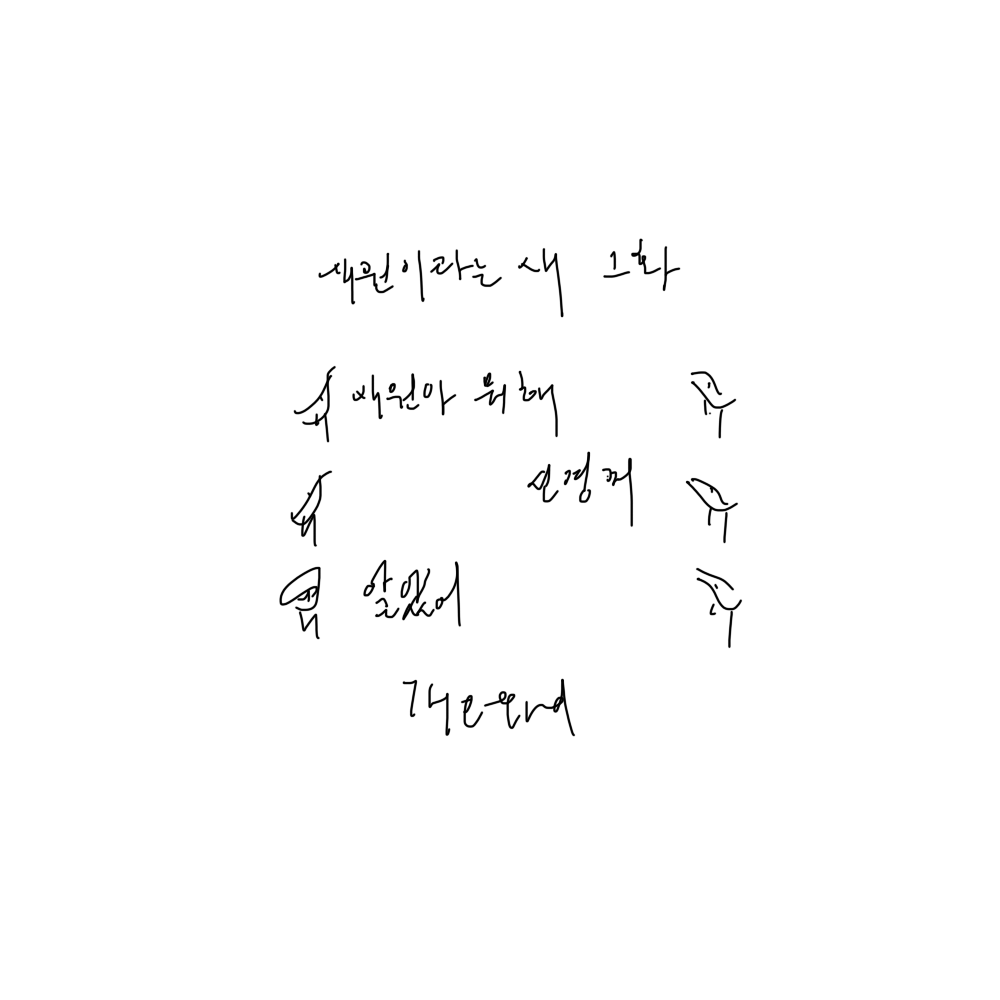 재원이라는 새 1화
재원아 뭐해
신경꺼
알았어